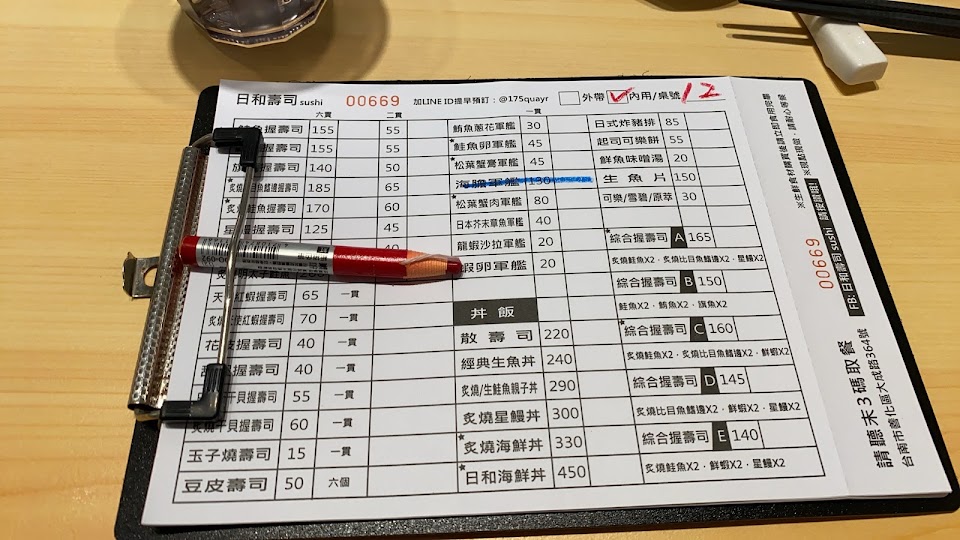 日和壽司 sushi 00669 加LINE ID提早預訂：@175quayr 外帶 ✓ 內用/桌號 12
六貫 二貫 一貫
握壽司 155 55
握壽司 155 55
握壽司 140 50
魚鰭邊握壽司 185 65
炙燒鮭魚握壽司 170 60
星鰻握壽司 125 45
40
天使紅蝦握壽司 65 一貫
紅蝦握壽司 70 一貫
花枝握壽司 40 一貫
握壽司 40 一貫
干貝握壽司 55 一貫
炙燒干貝握壽司 60 一貫
玉子燒壽司 15 一貫
豆皮壽司 50 六個
鮪魚蔥花軍艦 30
*鮭魚卵軍艦 45
*松葉蟹膏軍艦 45
海膽軍艦 130
*松葉蟹肉軍艦 80
日本芥末章魚軍艦 40
龍蝦沙拉軍艦 20
蝦卵軍艦 20
丼飯
散壽司 220
經典生魚丼 240
炙燒/生鮭魚親子丼 290
炙燒星鰻丼 300
*炙燒海鮮丼 330
*日和海鮮丼 450
日式炸豬排 85
起司可樂餅 55
鮮魚味噌湯 20
生魚片 150
可樂/雪碧/原萃 30
*綜合握壽司 A 165
炙燒鮭魚X2．炙燒比目魚鰭邊X2．星鰻X2
綜合握壽司 B 150
鮭魚X2．鮪魚X2．旗魚X2
*綜合握壽司 C 160
炙燒鮭魚X2．炙燒比目魚鰭邊X2．鮮蝦X2
綜合握壽司 D 145
炙燒比目魚鰭邊X2．鮮蝦X2．星鰻X2
綜合握壽司 E 140
炙燒鮭魚X2．鮮蝦X2．星鰻X2
※生鮮食材購買後請立即食用完畢
※現點現做，請耐心等候
00669
FB: 日和壽司 sushi 請按讚哦!
請聽末3碼取餐
台南市善化區大成路364號